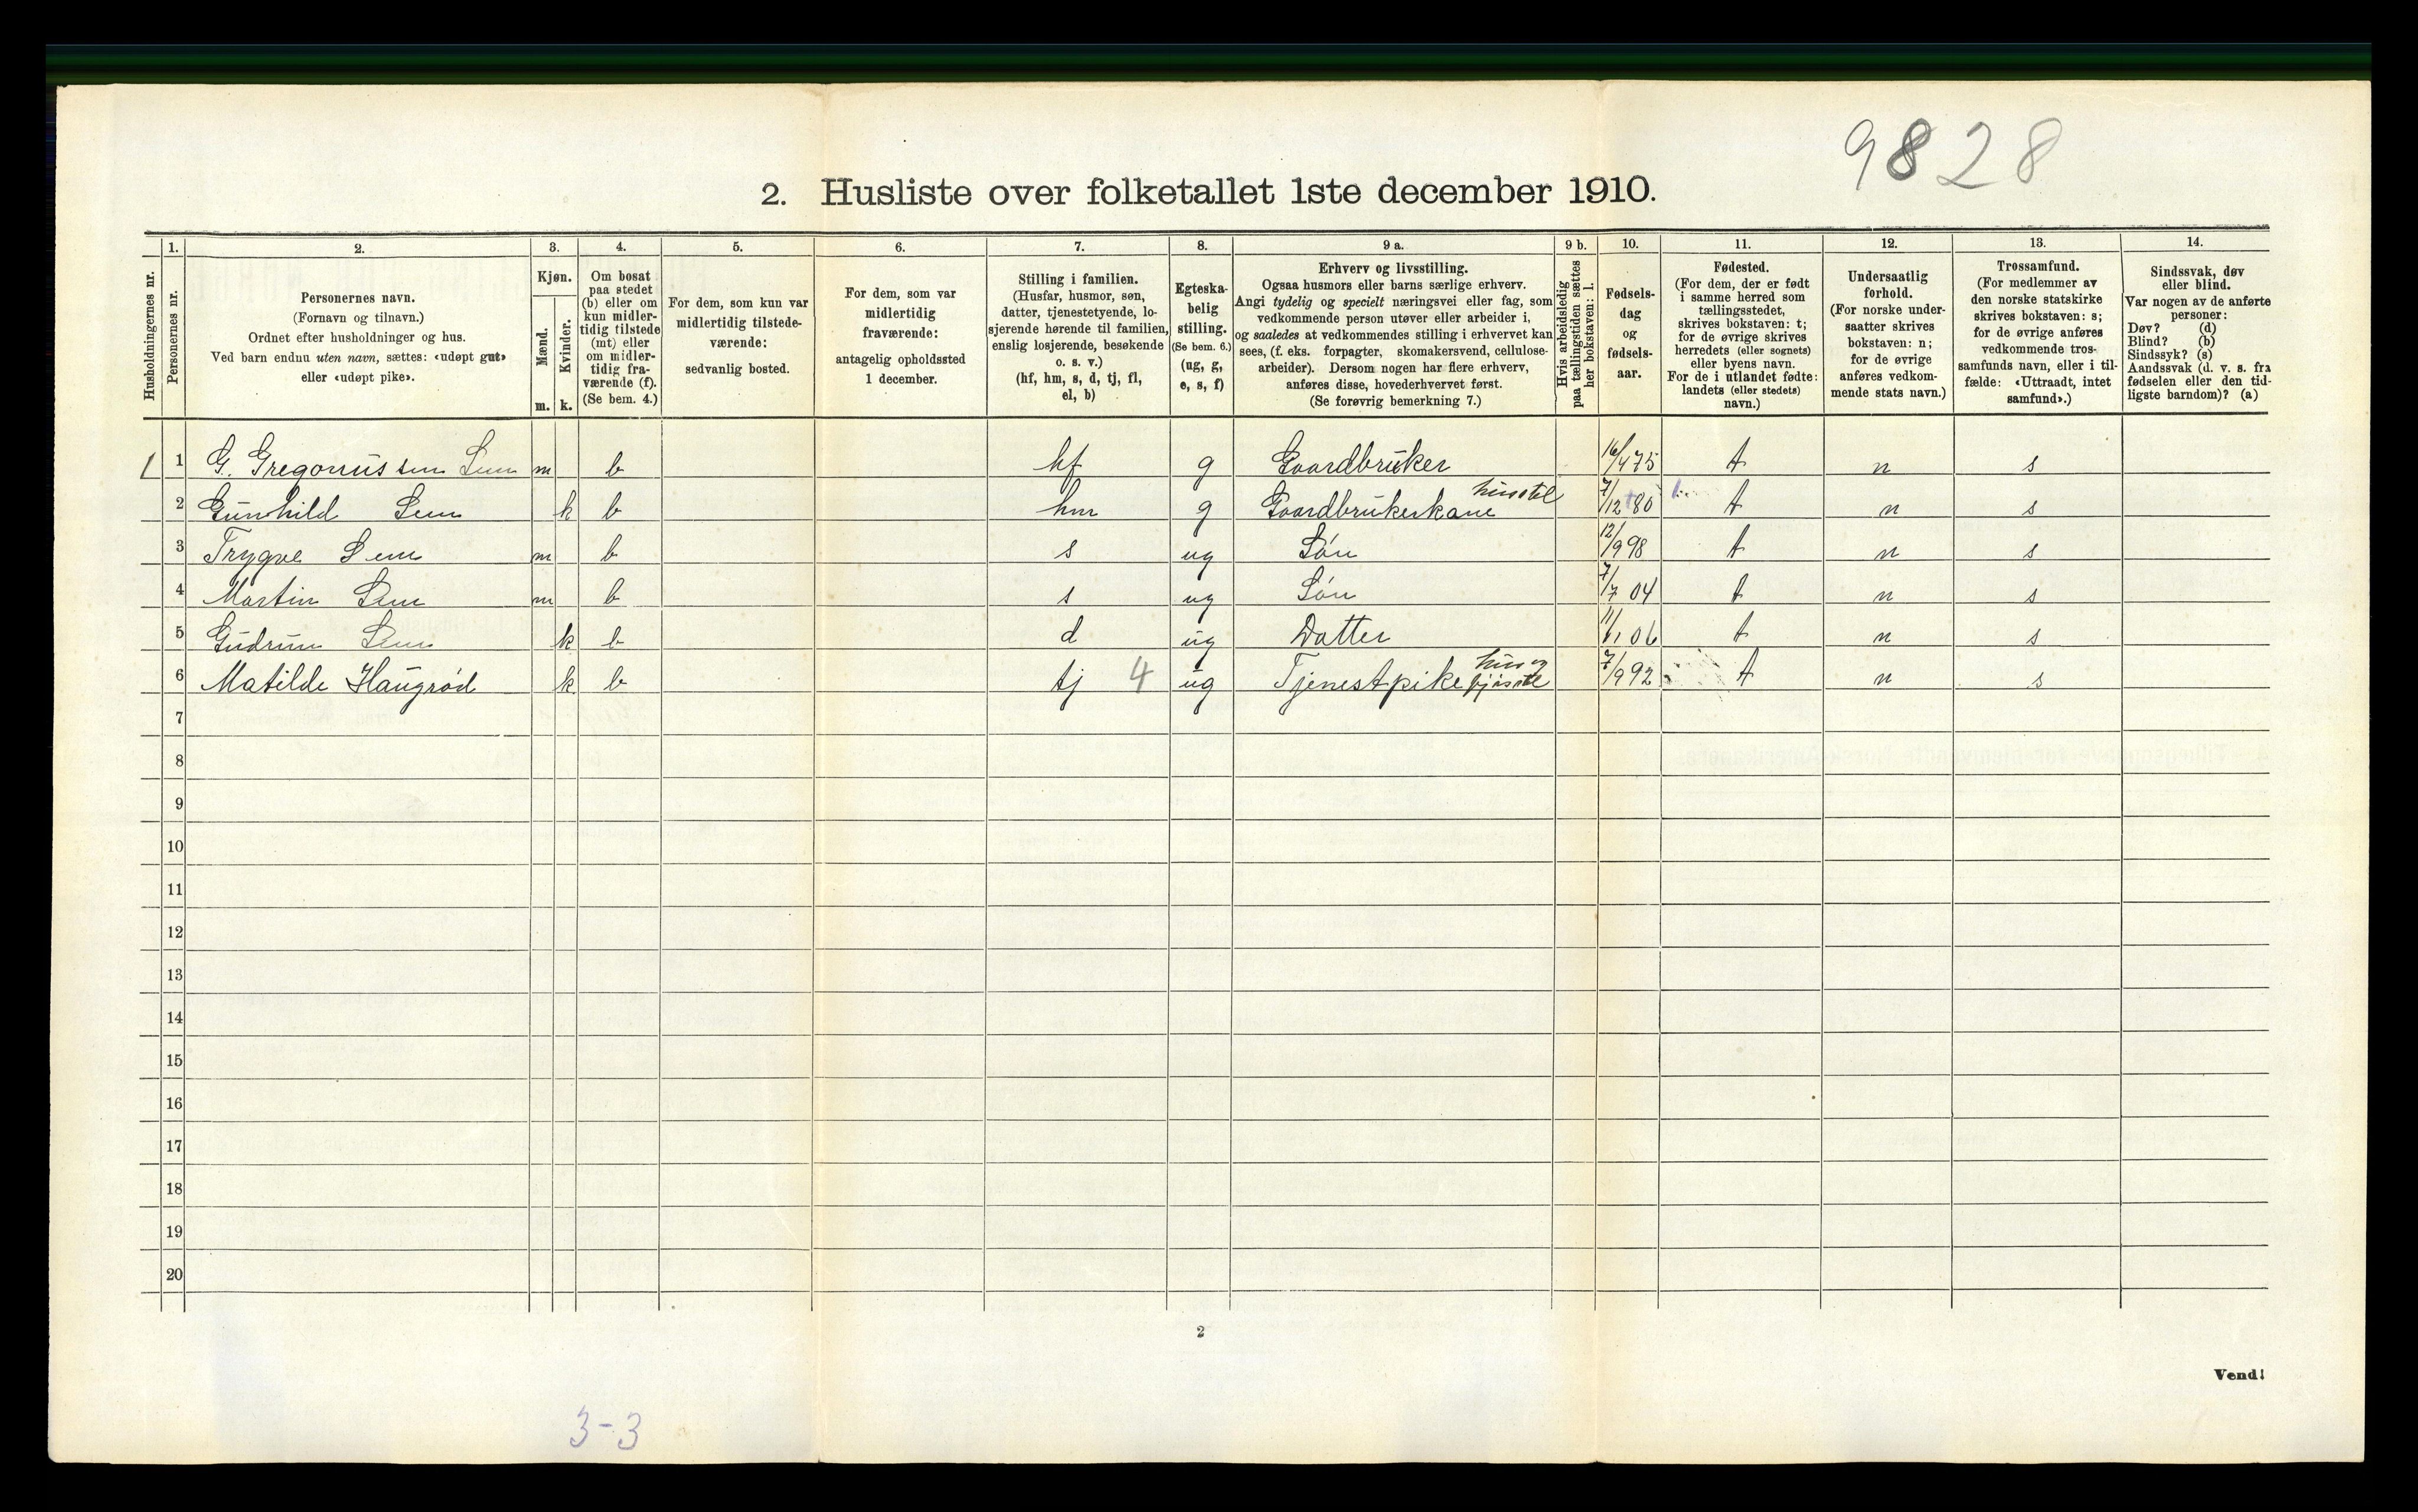 9828
2. Husliste over folketallet 1ste december 1910.
Husholdningernes nr.
1. Personernes nr.
2. Personernes navn.
(Fornavn og tilnavn.)
Ordnet efter husholdninger og hus.
Ved barn endnu uten navn, sættes: «udøpt gut»
eller «udøpt pike».
3. Kjøn.
Mænd. m.
Kvinder. k.
4. Om bosat
paa stedet
(b) eller om
kun midler-
tidig tilstede
(mt) eller
om midler-
tidig fra-
værende (f).
(Se bem. 4.)
5. For dem, som kun var
midlertidig tilstede-
værende:
sedvanlig bosted.
6. For dem, som var
midlertidig
fraværende:
antagelig opholdssted
1 december.
7. Stilling i familien.
(Husfar, husmor, søn,
datter, tjenestetyende, lo-
sjerende hørende til familien,
enslig losjerende, besøkende
o. s. v.)
(hf, hm, s, d, tj, fl,
el, b)
8. Egteska-
belig
stilling.
(Se bem. 6.)
(ug, g,
e, s, f)
9 a. Erhverv og livsstilling.
Ogsaa husmors eller barns særlige erhverv.
Angi tydelig og specielt næringsvei eller fag, som
vedkommende person utøver eller arbeider i,
og saaledes at vedkommendes stilling i erhvervet kan
sees, (f. eks. forpagter, skomakersvend, cellulose-
arbeider). Dersom nogen har flere erhverv,
anføres disse, hovederhvervet først.
(Se forøvrig bemerkning 7.)
9 b. Hvis arbeidsledig
paa tællingstiden sættes
her bokstaven: l.
10. Fødsels-
dag
og
fødsels-
aar.
11. Fødested.
(For dem, der er født
i samme herred som
tællingsstedet,
skrives bokstaven: t;
for de øvrige skrives
herredets (eller sognets)
eller byens navn.
For de i utlandet fødte:
landets (eller stedets)
navn.)
12. Undersaatlig
forhold.
(For norske under-
saatter skrives
bokstaven: n;
for de øvrige
anføres vedkom-
mende stats navn.)
13. Trossamfund.
(For medlemmer av
den norske statskirke
skrives bokstaven: s;
for de øvrige anføres
vedkommende tros-
samfunds navn, eller i til-
fælde: «Uttraadt, intet
samfund».)
14. Sindssvak, døv
eller blind.
Var nogen av de anførte
personer:
Døv? (d)
Blind? (b)
Sindssyk? (s)
Aandssvak (d. v. s. fra
fødselen eller den tid-
ligste barndom)? (a)
1 1 G. Gregoriussen Sem m b hf g Gaardbruker 16/4 75 t n s
2 Gunhild Sem k b hm g Gaardbrukerkone husstel 7/12 80 t n s
3 Trygve Sem m b s ug Søn 12/9 98 t n s
4 Martin Sem m b s ug Søn 7/7 04 t n s
5 Gudrun Sem k b d ug Datter 11/1 06 t n s
6 Matilde Haugrød k b tj 4 ug Tjenestpike hus og fjøsstel 7/9 92 t n s
7
8
9
10
11
12
13
14
15
16
17
18
19
20
2
Vend!
3-3